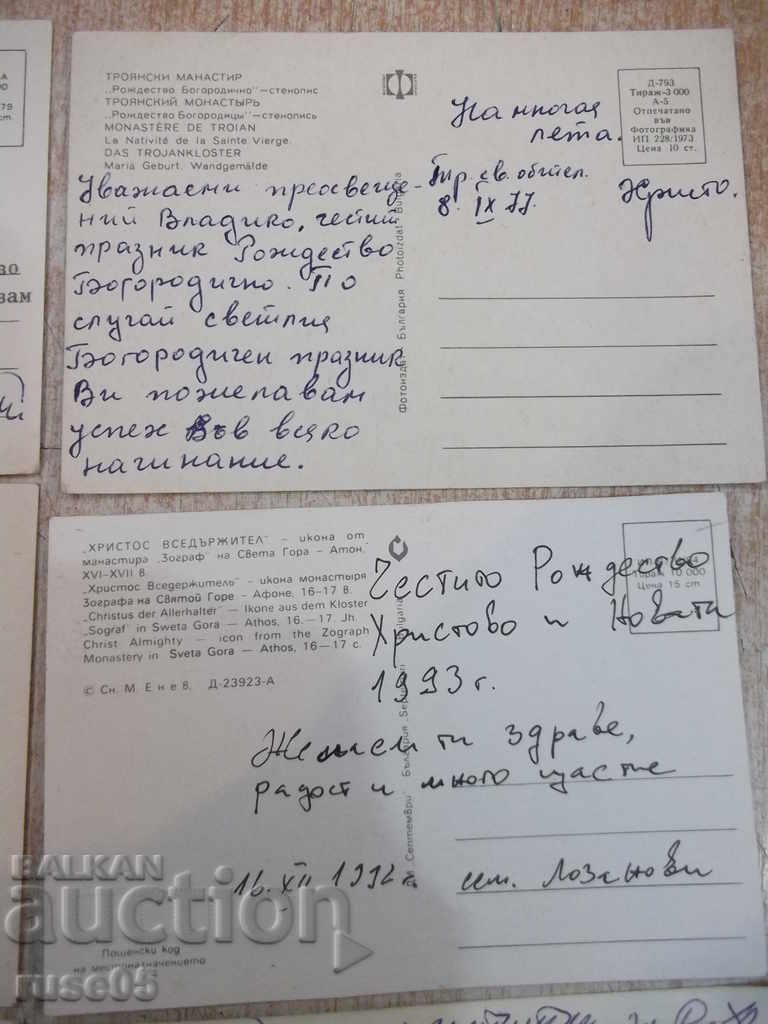 ТРОЯНСКИ МАНАСТИР
„Рождество Богородично“ — стенопис
ТРОЯНСКИЙ МОНАСТЫРЬ
„Рождество Богородицы“ — стенопись
MONASTÈRE DE TROIAN
La Nativité de la Sainte Vierge.
DAS TROJANKLOSTER
Maria Geburt. Wandgemälde
Д-793
Тираж-3 000
А-5
Отпечатано
във
Фотографика
ИП 228/1973
Цена 10 ст.
На многая
лета.
св. обител.
8. IX 77.
Христо.
Уважаеми преосвеще-
ний Владико, честит
празник Рождество
Богородично. По
случай светлия
Богородичен празник
Ви пожелавам
успех във всяко
начинание.
Фотоиздат България Photoizdat Bulgaria
во
вам
„ХРИСТОС ВСЕДЪРЖИТЕЛ“ — икона от
манастира „Зограф“ на Света Гора — Атон,
XVI—XVII в.
„Христос Вседержитель“ — икона монастыря
Зографа на Святой Горе — Афоне, 16—17 в.
„Christus der Allerhalter“ — Ikone aus dem Kloster
„Sograf“ in Sweta Gora — Athos, 16.—17. Jh.
Christ Almighty — icon from the Zograph
Monastery in Sveta Gora — Athos, 16—17 c.
© Сн. М. Енев. Д-23923-А
Тираж 10 000
Цена 15 ст
Честито Рождество
Христово и Новата
1993 г.
Желаем ти здраве,
радост и много щастие
16. XII 1992 г. сем. Лозанови
Септември България
Пощенски код
на местоназначението
BALKAN
auction
ruse05